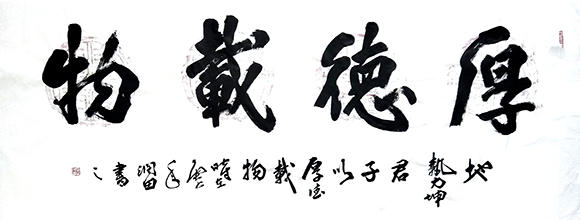 厚德載物
地勢坤君子以厚德載物年潤田書之